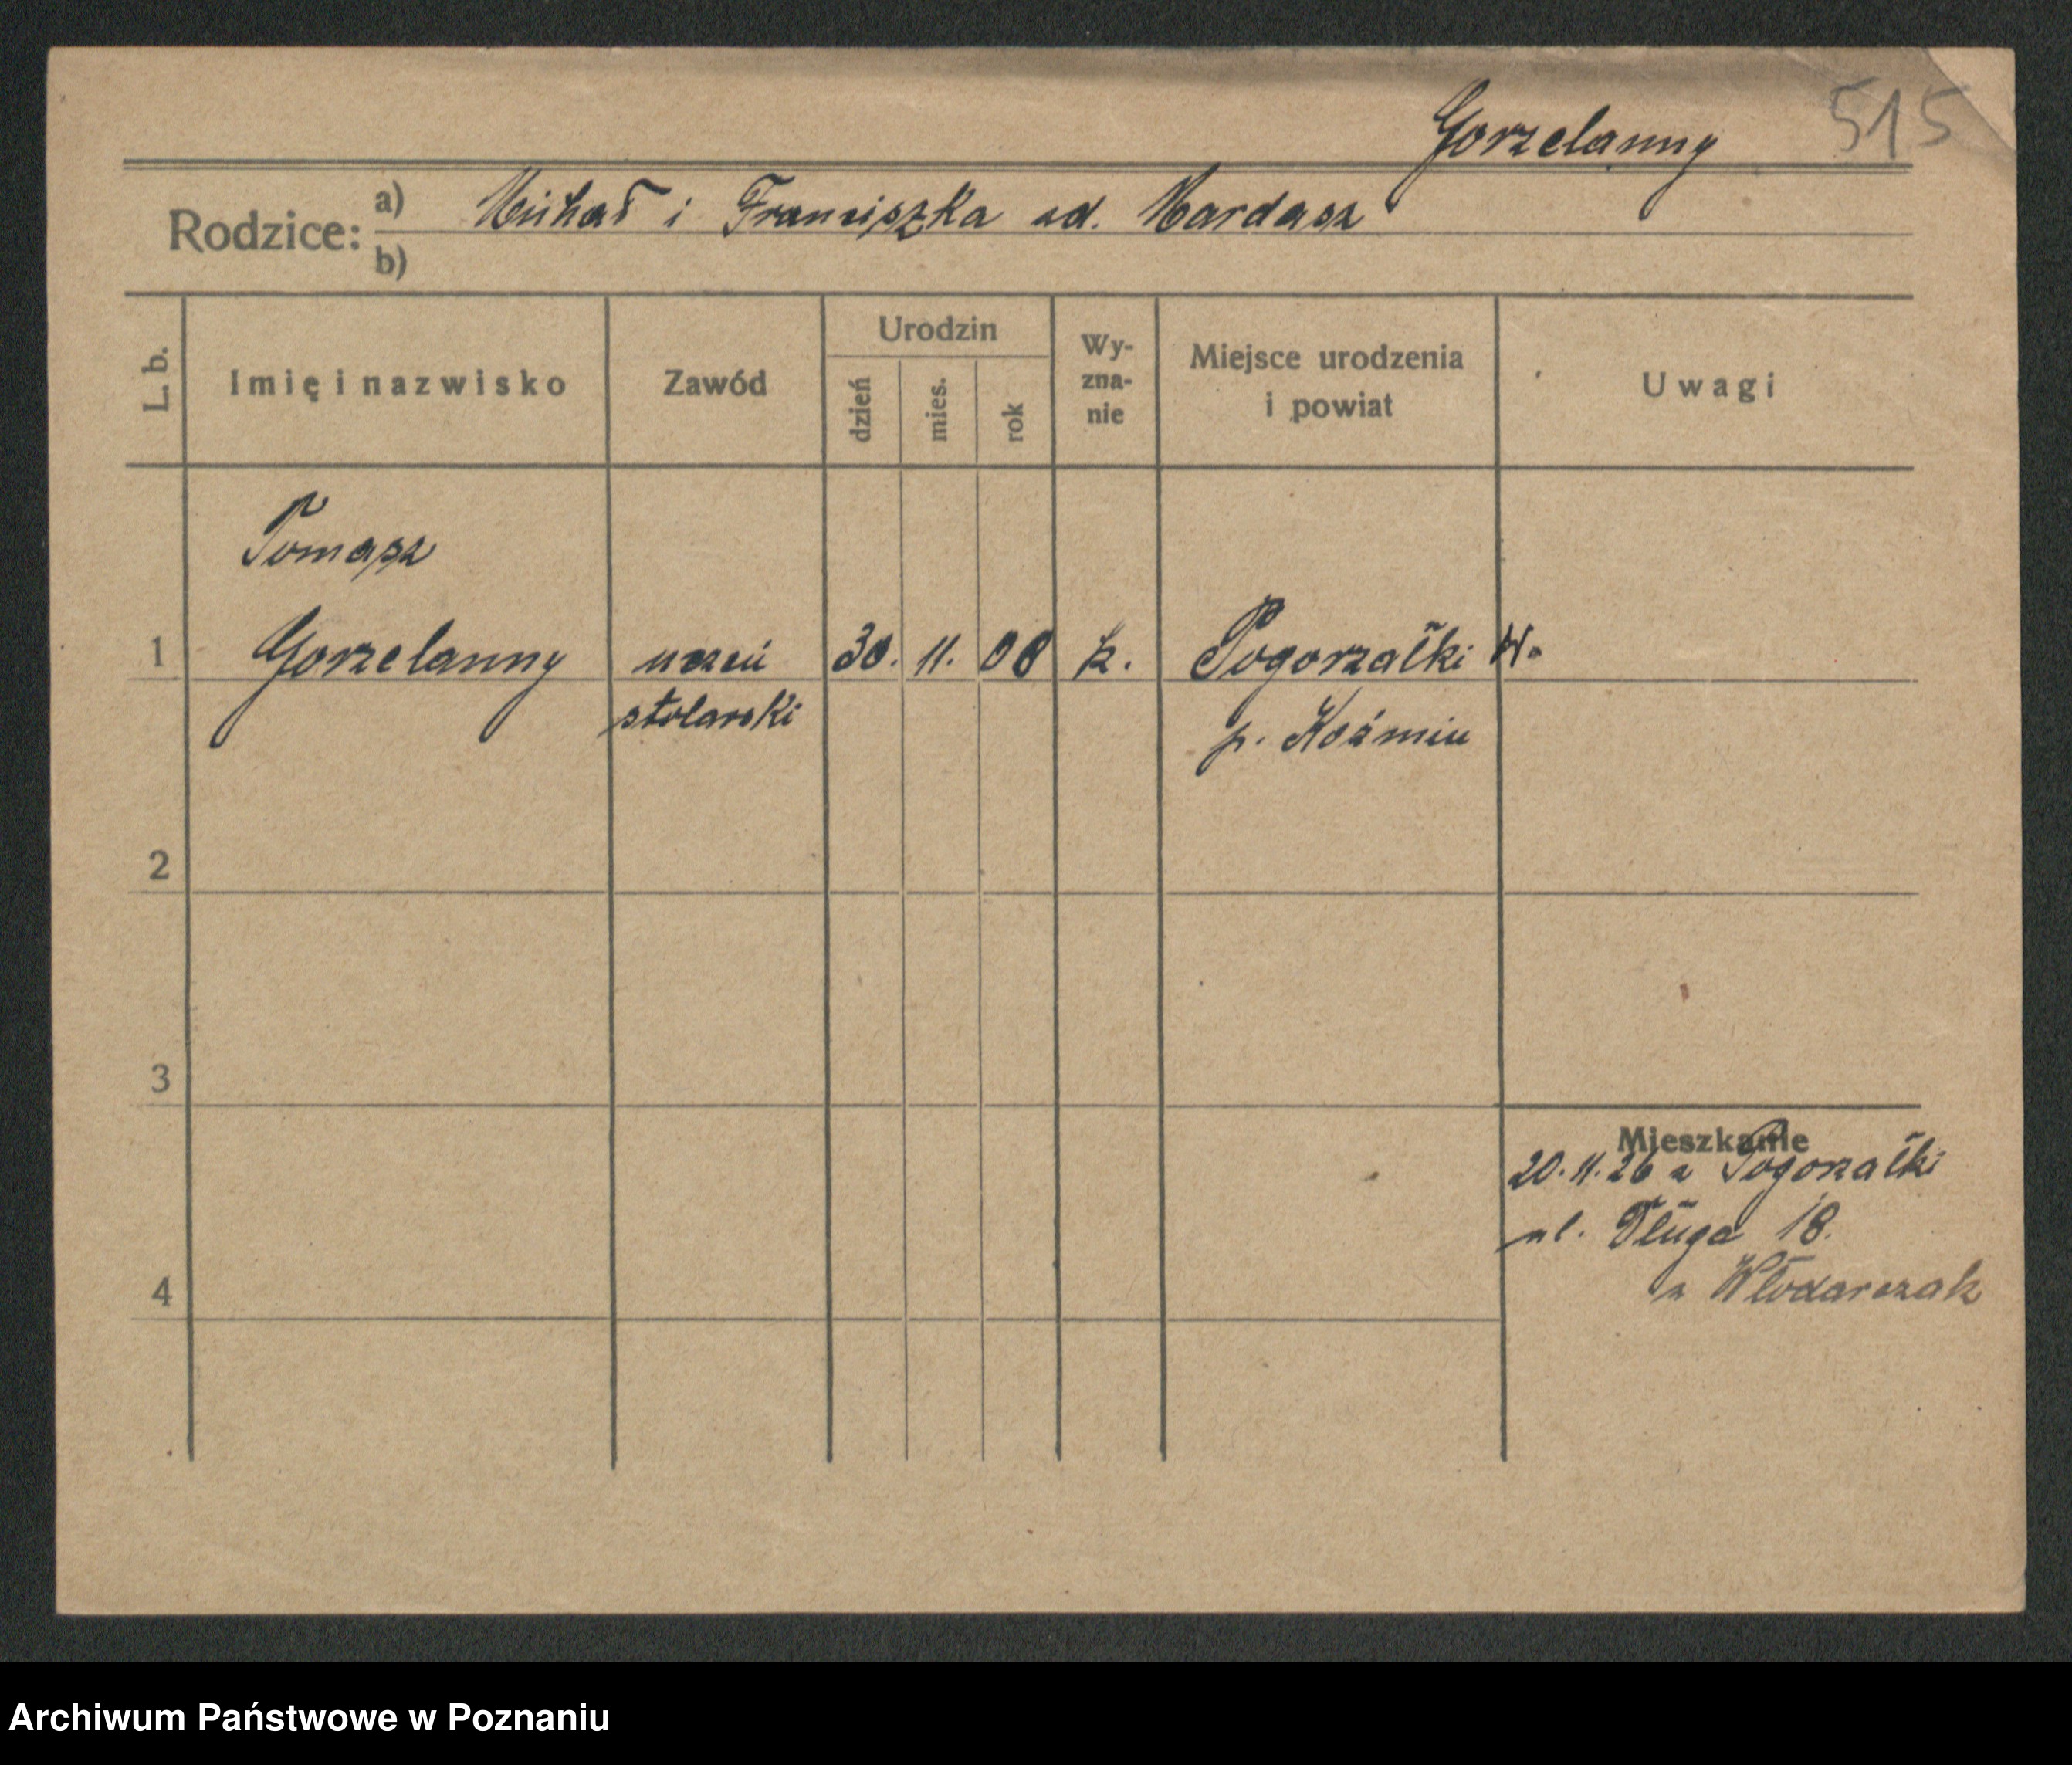 Gorzelanny 515
Rodzice: a) Michał i Franciszka ud. Mardasz
b)
L. b. Imię i nazwisko Zawód Urodzin dzień mies. rok Wy-zna-nie Miejsce urodzenia i powiat Uwagi
Tomasz
1 Gorzelanny uczeń 30. 11. 08 k. Pogorzałki W.
stolarski p. Koźmin
2
3
Mieszkanie
20. 11. 26 z Pogorzałki
ul. Długa 18.
4 z Włodarczak
Archiwum Państwowe w Poznaniu